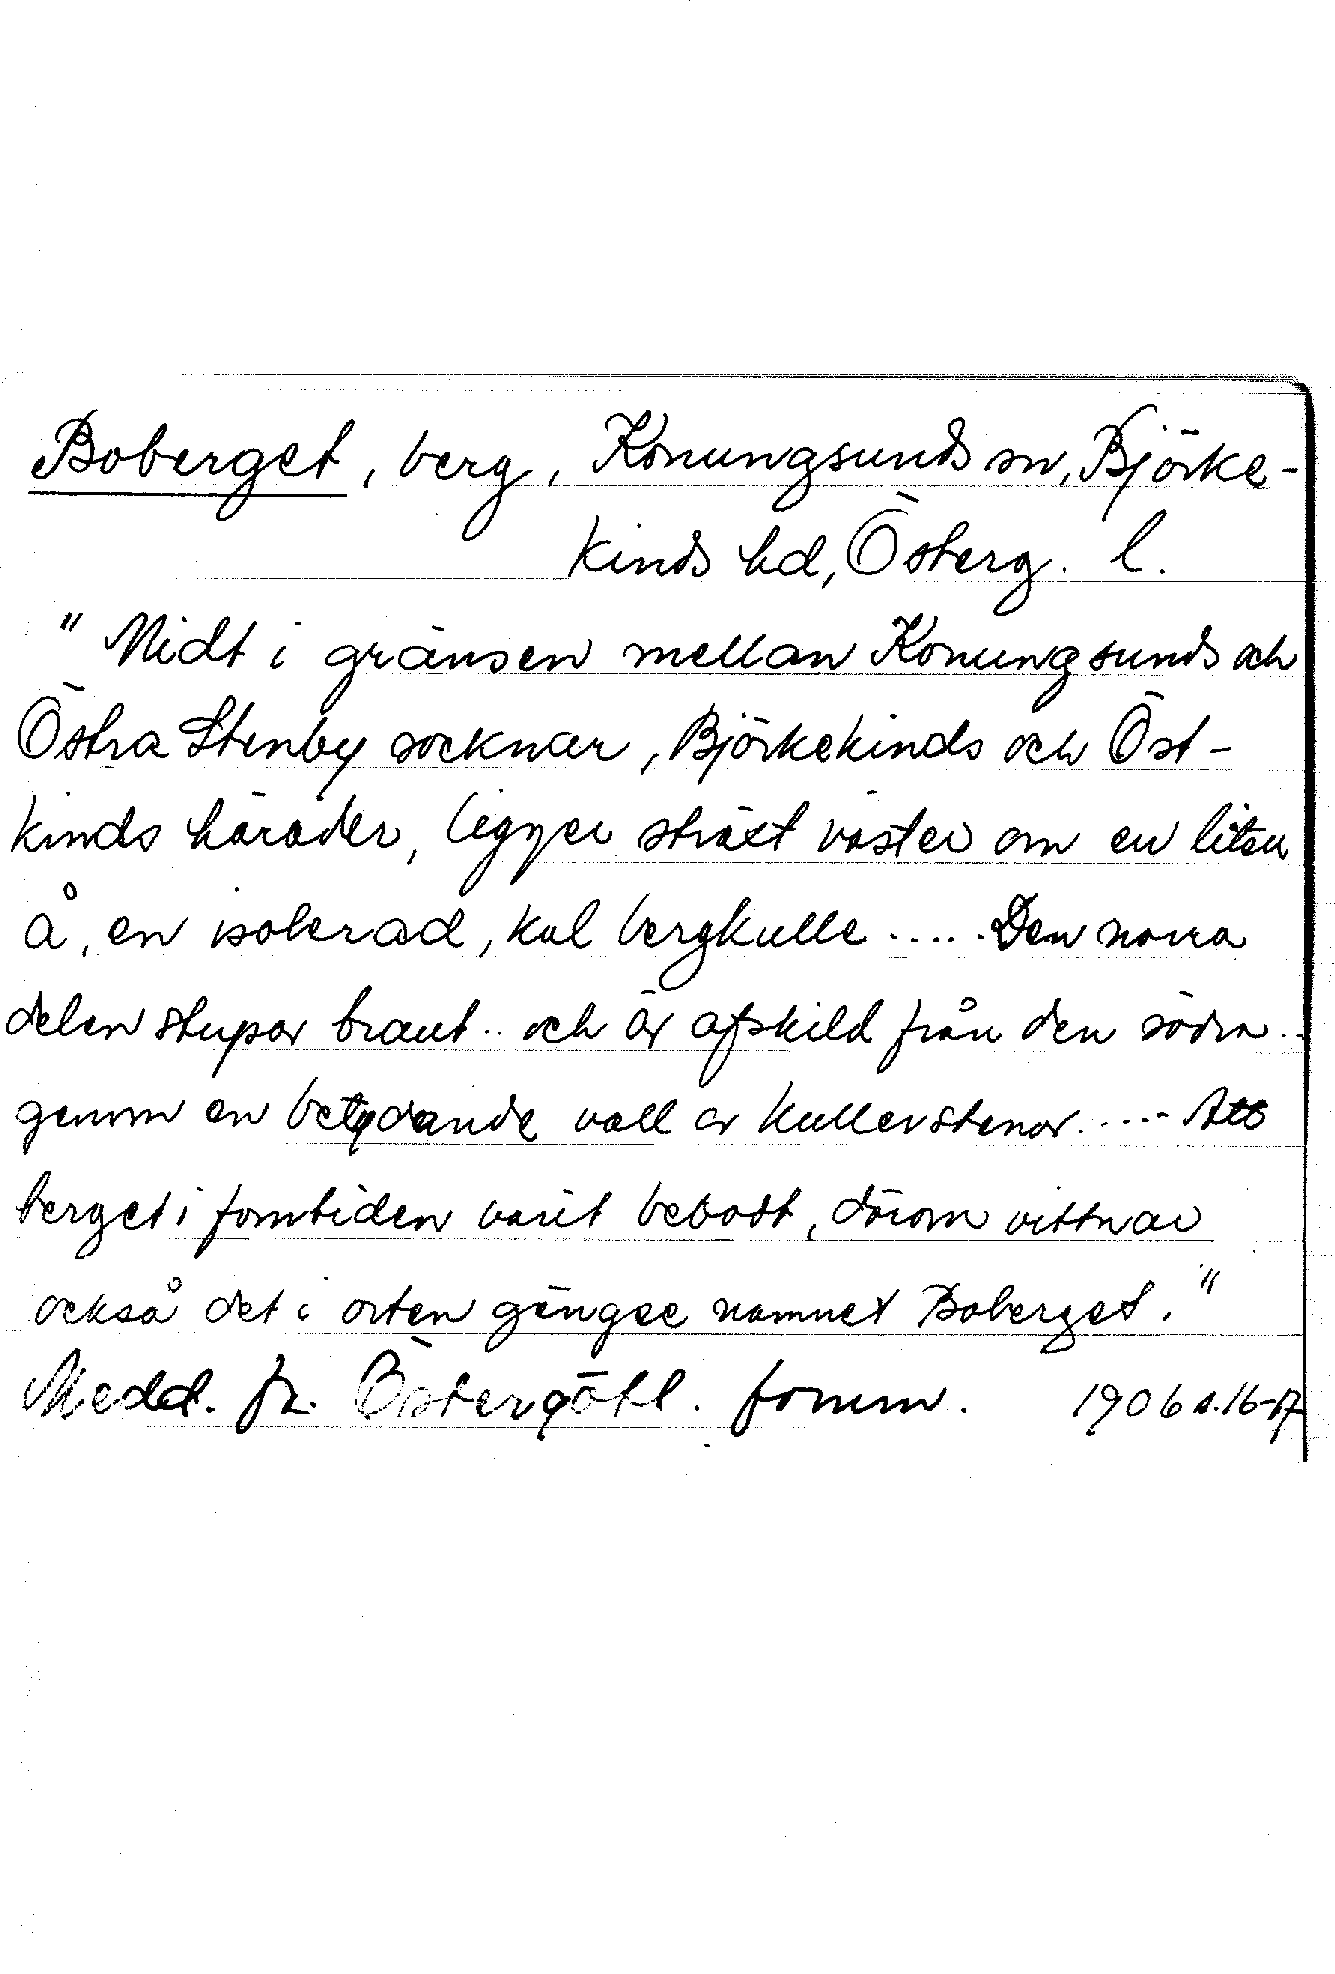 Boberget, berg, Konungsunds sn, Björke-
kinds hd, Österg. l.
"Midt i gränsen mellan Konungsunds och
Östra Stenby socknar, Björkekinds och Öst-
kinds härader, ligger sträxt väster om en liten
å, en isolerad, kal bergkulle ..... Den norra
delen stupar brant .. och är afskild från den södra ..
genom en betydande vall av kullerstenar ..... Att
berget i forntiden varit bebott, därom vittnar
också det i orten gängse namnet Boberget."
Medd. fr. Östergötl. fornm. 1906 s. 16-17